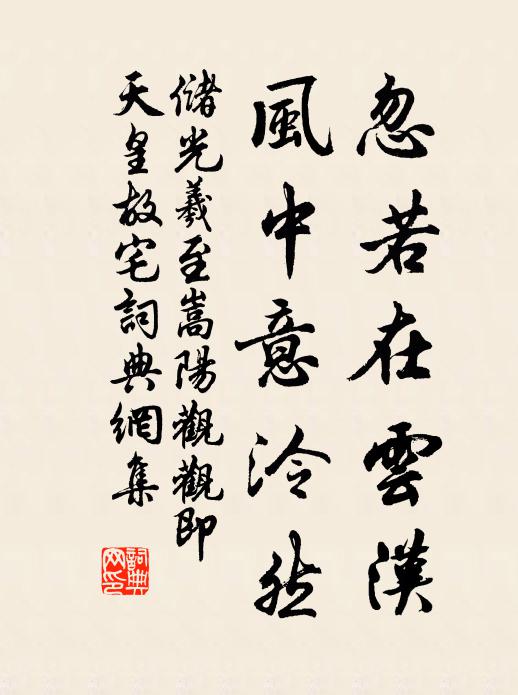 忽若在雲漢
風中意泠然
儲光羲至嵩陽觀觀即
天皇故宅詞典網集
詞典
网印